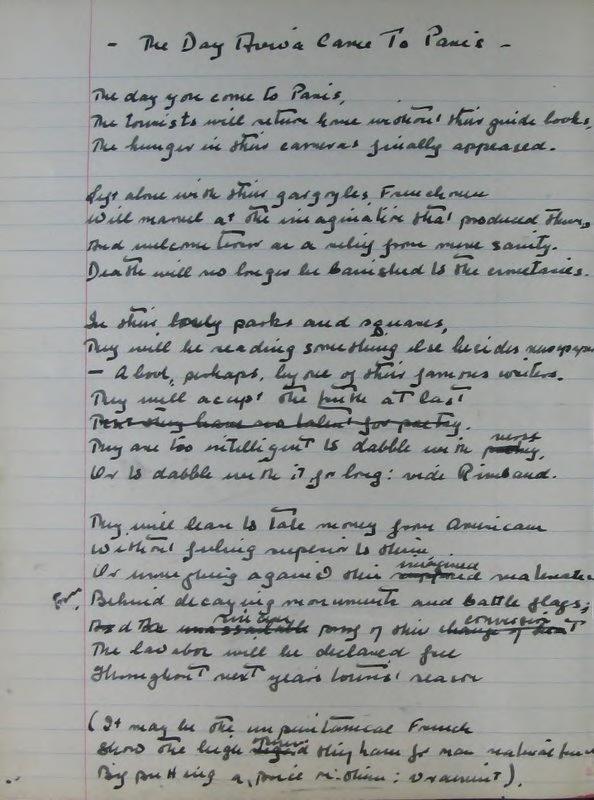 - The Day Aviva Came To Paris -
The day you come to Paris,
The tourists will return home without their guide books,
The hunger in their cameras finally appeased.
Left alone with their gargoyles, Frenchmen
Will marvel at the imagination that produced them,
And welcome terror as a relief from mere sanity.
Death will no longer be banished to the cemetaries.
In their lovely parks and squares,
They will be reading something else besides newspapers
- A book, perhaps, by one of their famous writers.
They will accept the truth at last
That they have no talent for poetry.
They are too intelligent to dabble with poetry, verse
Or to dabble with it for long: vide Rimbaud.
They will learn to take money from Americans
Without feeling superior to them
Or inveighing against their imagined
for, Behind decaying monuments and battle flags;
And the unassailable of their change of heart conversion
The lavabos will be declared free
Throughout next year's tourist season
(It may be the unpuritanical French
Show the high they have for man natural
By putting a price on them: vraiment).